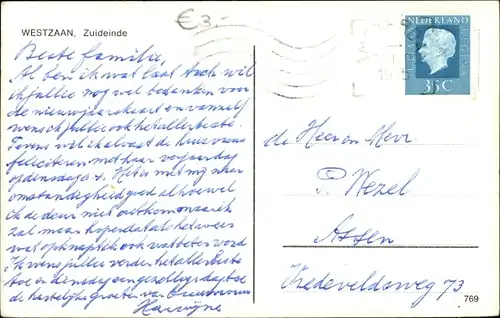 € 3,-
WESTZAAN, Zuideinde
NEDERLAND
35 C
Beste familie,
Al ben ik wat laat toch wil
ik jullie nog wel bedanken voor
de nieuwjaarskaart en vanzelf
wens ik jullie ook het allerbeste.
Tevens wil ik alvast de huisvrouw
feliciteren met haar verjaardag
op dinsdag a.s. Het is met mij naar
omstandigheid goed alhoewel
ik de deur niet uitkom
zal maar hopen dat als het weer
wat opknapt ik ook wat beter word
Ik wens jullie verder het allerbeste
toe en dinsdag een gezellige dag toe
de hartelijke groeten van
de Heer en Mevr.
P. Wezel
Assen
Vredeveldseweg 73
769